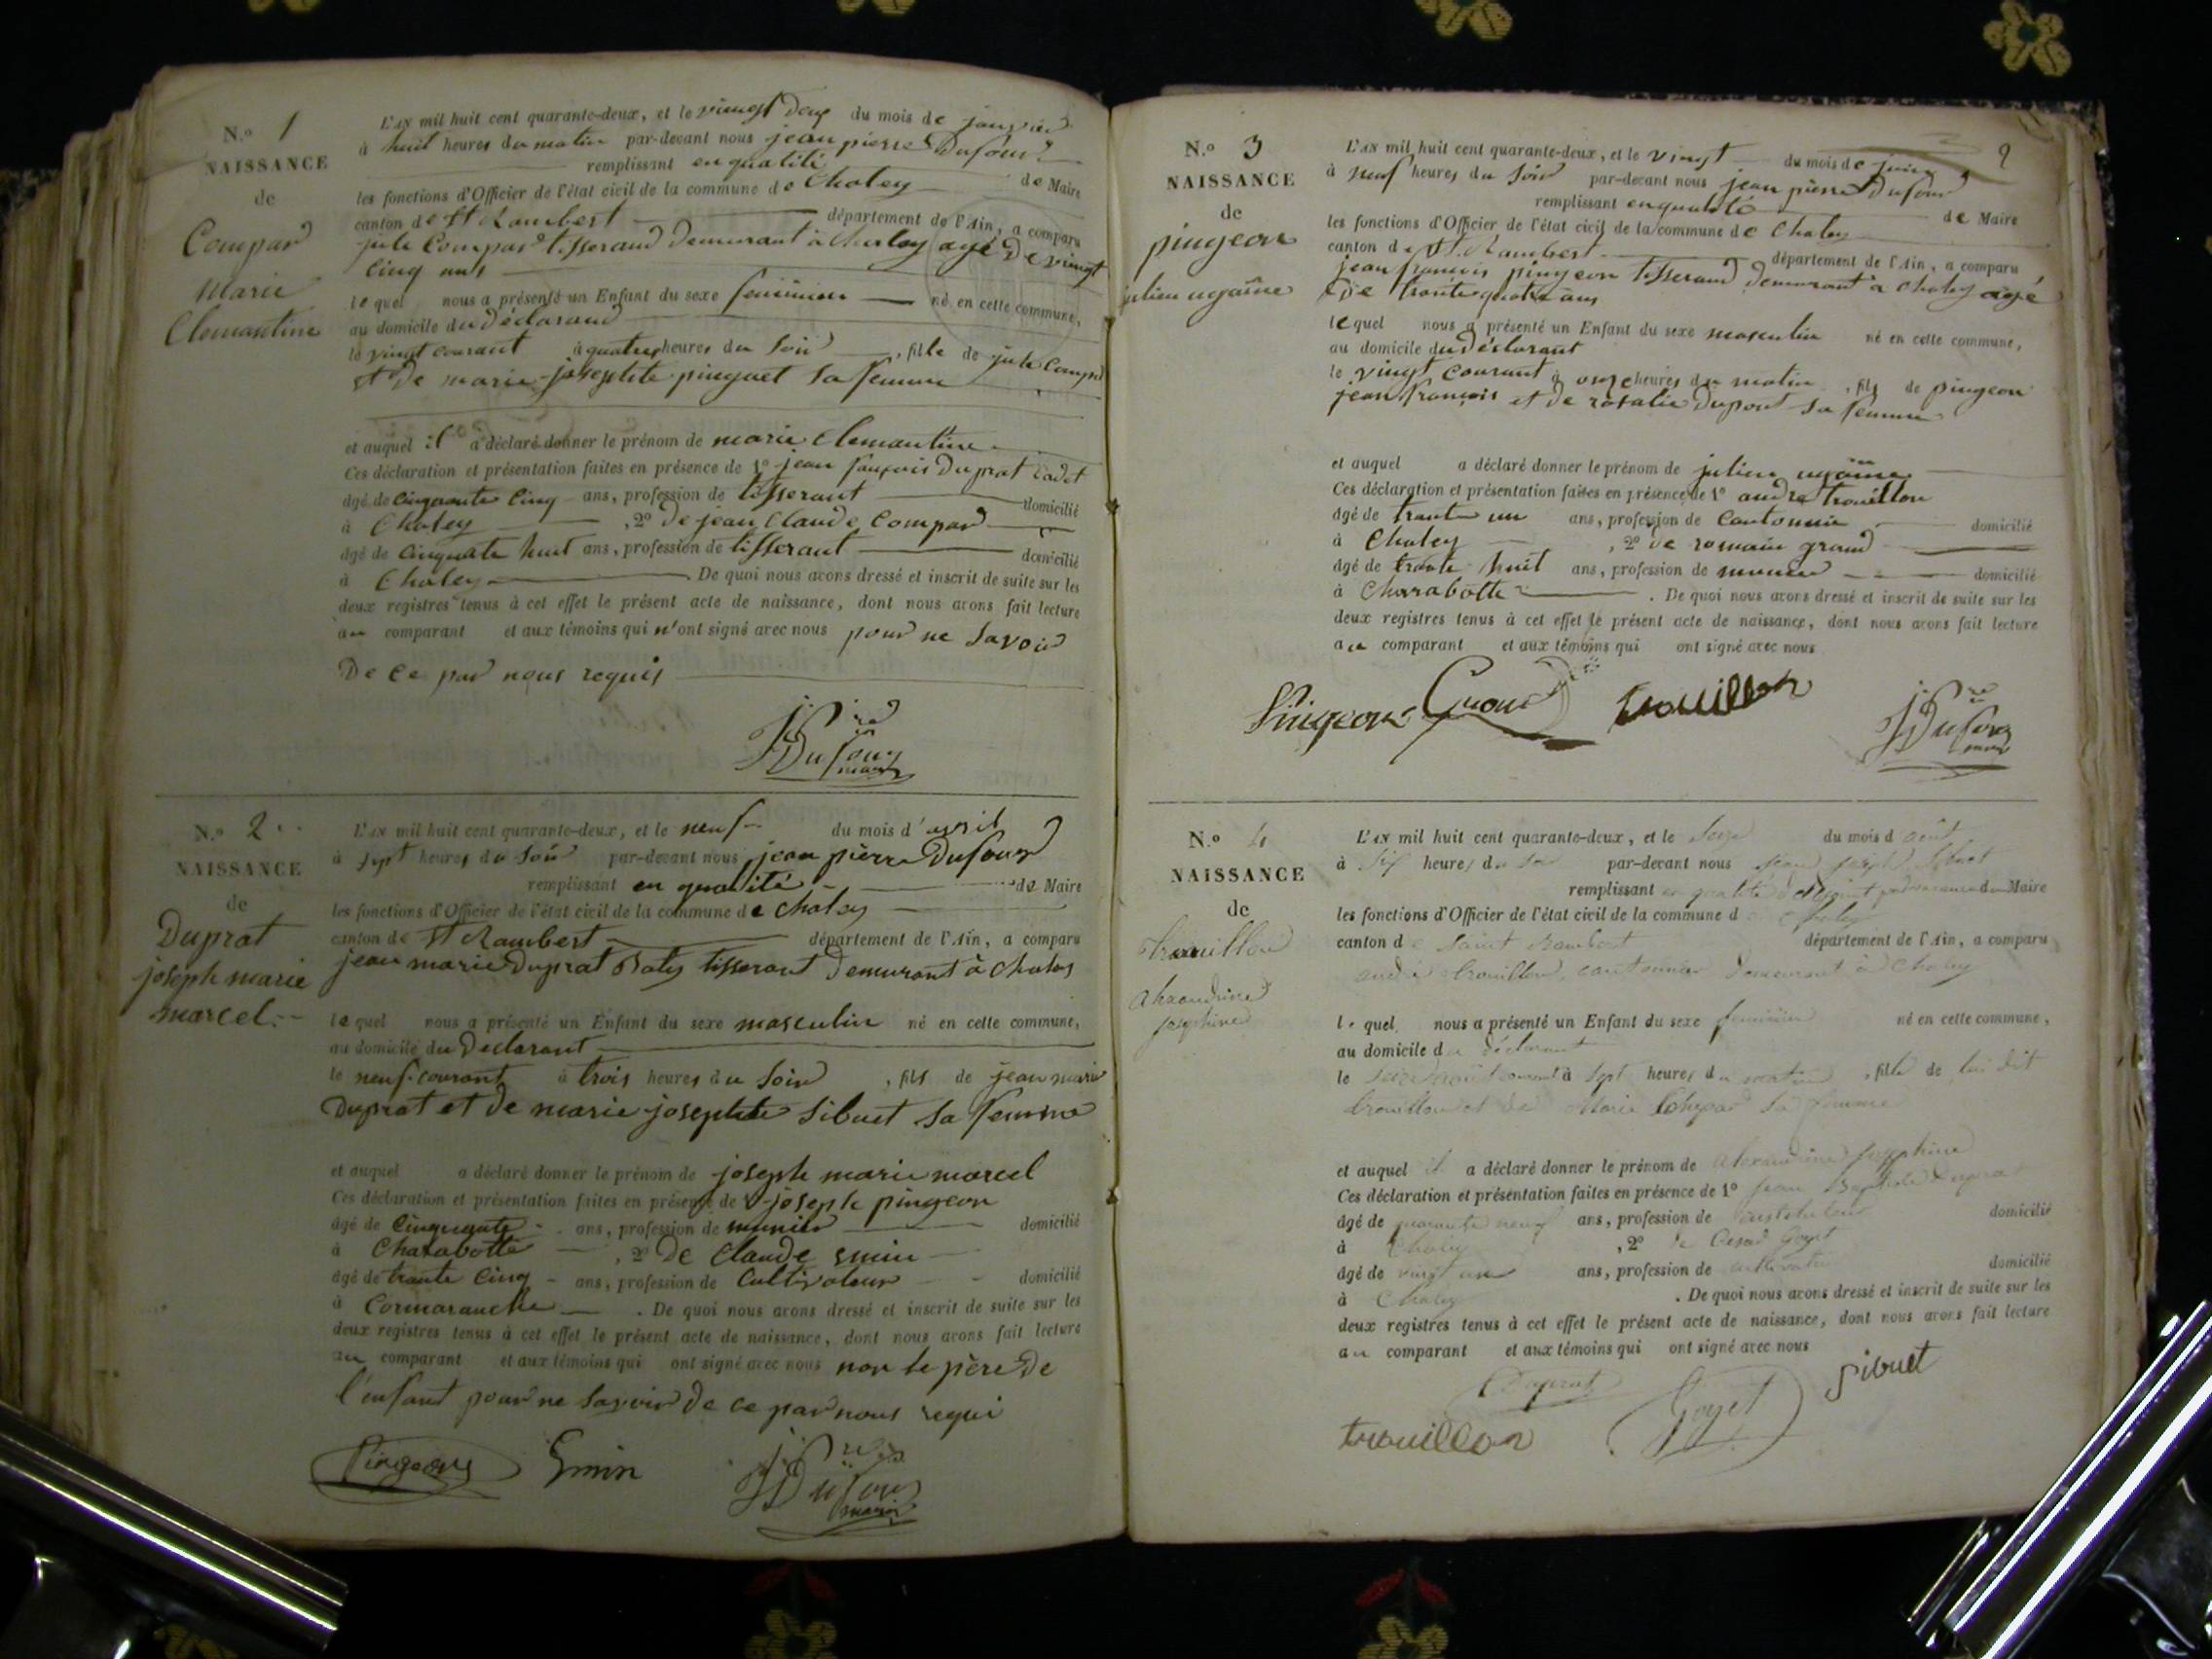 N.º 1
NAISSANCE
de
Compar
Marie
Clemantine
L'AN mil huit cent quarante-deux, et le viengt deux du mois de janvier
à huit heures du matin par-devant nous jean pierre Dufour
remplissant en qualité de Maire
les fonctions d'Officier de l'état civil de la commune de Chaley
canton de St Rambert département de l'Ain, a comparu
jule Compar tisserand demurant à Chaley agé de vingt
cinq ans
lequel nous a présenté un Enfant du sexe feminien né en cette commune,
au domicile du déclarand
le vingt courant à quatre heures du soir, fille de jule Compar
et de marie josephte pinguet sa femme
et auquel il a déclaré donner le prénom de marie Clemantine
Ces déclaration et présentation faites en présence de 1º jean françois Duprat Cadet
âgé de cinquante cinq ans, profession de tisserant domicilié
à Chaley, 2º de jean Claude Compar
âgé de cinquate huit ans, profession de tisserant domicilié
à Chaley. De quoi nous avons dressé et inscrit de suite sur les
deux registres tenus à cet effet le présent acte de naissance, dont nous avons fait lecture
au comparant et aux témoins qui n'ont signé avec nous pour ne savoir
De ce par nous requis
j. p.re Dufour maire
N.º 2
NAISSANCE
de
Duprat
joseph marie
marcel
L'AN mil huit cent quarante-deux, et le neuf du mois d'avril
à sept heures du soir par-devant nous jean pierre Dufour
remplissant en qualité de Maire
les fonctions d'Officier de l'état civil de la commune de Chaley
canton de St Rambert département de l'Ain, a comparu
jean marie Duprat Baty tisserant demurant à Chaley
lequel nous a présenté un Enfant du sexe masculin né en cette commune,
au domicile du Declarant
le neuf courant à trois heures du soir, fils de jean marie
Duprat et de marie josephte Sibuet sa femme
et auquel a déclaré donner le prénom de joseph marie marcel
Ces déclaration et présentation faites en présence de 1º joseph pingeon
âgé de Cinquante ans, profession de munier domicilié
à Charabotte, 2º De Claude Emin
âgé de trante Cinq ans, profession de Cultivateur domicilié
à Cormaranche. De quoi nous avons dressé et inscrit de suite sur les
deux registres tenus à cet effet le présent acte de naissance, dont nous avons fait lecture
au comparant et aux témoins qui ont signé avec nous non le père de
l'enfant pour ne savoir de ce par nous requi
Pingeon Emin j. p.re Dufour maire
2
N.º 3
NAISSANCE
de
pingeon
julien
L'AN mil huit cent quarante-deux, et le vingt du mois de juin
à neuf heures du soir par-devant nous jean pierre Dufour
remplissant en qualité de Maire
les fonctions d'Officier de l'état civil de la commune de Chaley
canton de St Rambert département de l'Ain, a comparu
jean françois pingeon tisserand demurant à Chaley agé
de trante quatre ans
lequel nous a présenté un Enfant du sexe masculin né en cette commune,
au domicile du déclarant
le vingt courant à onze heures du matin, fils de pingeon
jean françois et de rosalie Dupont sa femme
et auquel a déclaré donner le prénom de julien
Ces déclaration et présentation faites en présence de 1º andre trouillon
âgé de trante un ans, profession de Cantonnier domicilié
à Chaley, 2º de romain grand
âgé de trante huit ans, profession de munier domicilié
à Charabotte. De quoi nous avons dressé et inscrit de suite sur les
deux registres tenus à cet effet le présent acte de naissance, dont nous avons fait lecture
au comparant et aux témoins qui ont signé avec nous
Pingeon Grand trouillon j. p.re Dufour maire
N.º 4
NAISSANCE
de
trouillon
alexandrine
josephine
L'AN mil huit cent quarante-deux, et le Seize du mois d août
à six heures du soir par-devant nous jean joseph Sibuet
remplissant en qualité d'adjoint du Maire
les fonctions d'Officier de l'état civil de la commune de Chaley
canton de Saint Rambert département de l'Ain, a comparu
andré trouillon, cantonnier demeurant à Chaley
lequel nous a présenté un Enfant du sexe feminin né en cette commune,
au domicile du déclarant
le seize août courant à sept heures du matin, fille de lui dit
trouillon et de Marie Compar sa femme
et auquel il a déclaré donner le prénom de alexandrine josephine
Ces déclaration et présentation faites en présence de 1º jean Baptiste Duprat
âgé de quarante neuf ans, profession de instituteur domicilié
à Chaley, 2º de César Goyet
âgé de vingt un ans, profession de cultivateur domicilié
à Chaley. De quoi nous avons dressé et inscrit de suite sur les
deux registres tenus à cet effet le présent acte de naissance, dont nous avons fait lecture
au comparant et aux témoins qui ont signé avec nous
Duprat Goyet Sibuet
trouillon